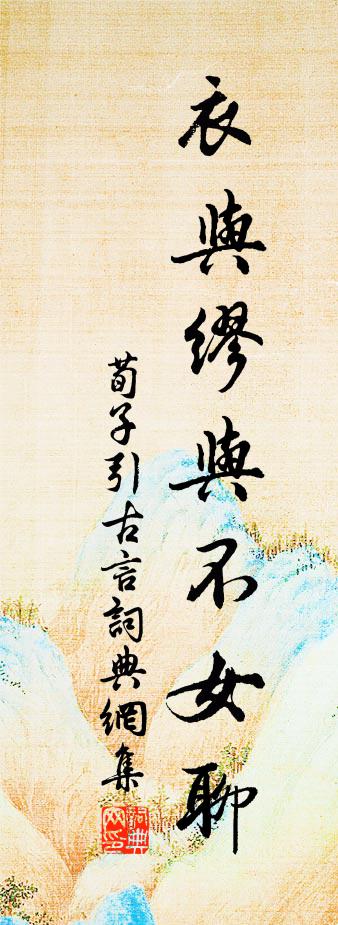 衣與繆與不女聊
荀子引古言詞典網集